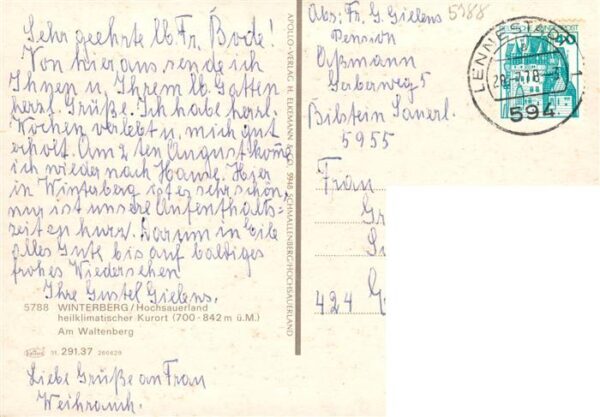 Sehr geehrte lb. Fr. Bode!
Von hier aus sende ich
Ihnen u. Ihrem lb. Gatten
herzl. Grüße. Ich habe herrl.
Wochen verlebt u. mich gut
erholt. Am 2ten August komme
ich wieder nach Hause. Hier
in Winterberg ist es sehr schön,
nur ist unsere Aufenthalts-
zeit zu kurz. Darum in Eile
alles Gute bis auf baldiges
frohes Wiedersehen
Ihre Gustel Gielens.
5788 WINTERBERG/Hochsauerland
heilklimatischer Kurort (700-842 m ü.M.)
Am Waltenberg
31. 291.37 260629
Liebe Grüße an Frau
Weihrauch.
APOLLO-VERLAG H. ELKEMANN & CO. 5948 SCHMALLENBERG/HOCHSAUERLAND
Abs: Fr. G. Gielens 5988
Pension
Aßmann
Gerberweg 5
Bilstein Sauerl.
5955
LENNESTADT
594
Frau
424